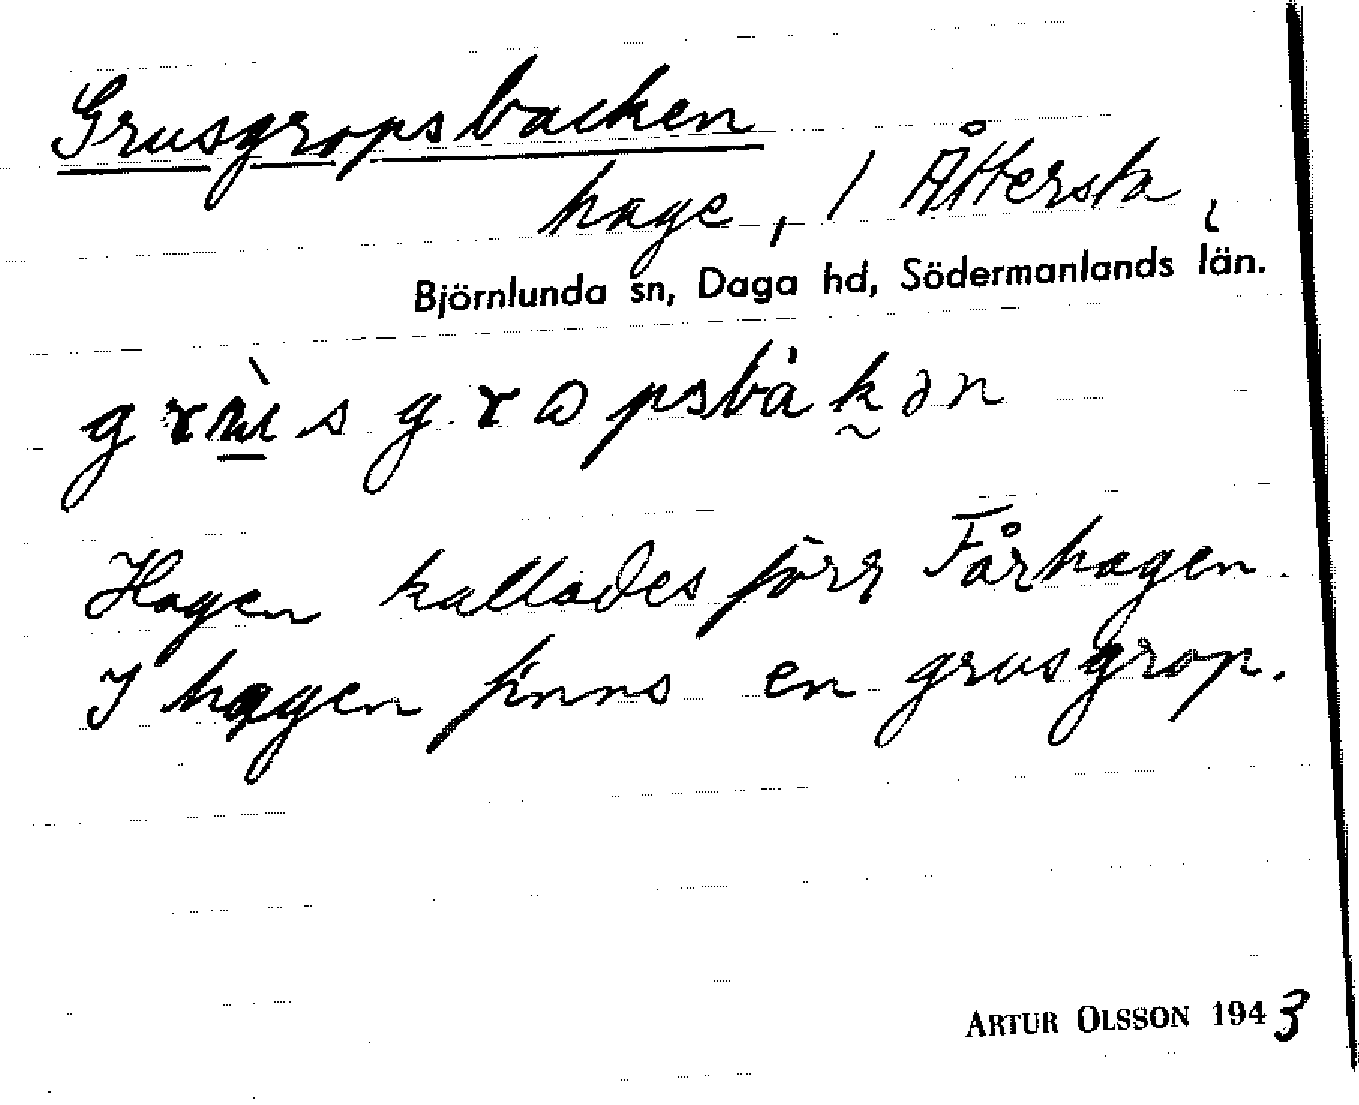 Grusgropsbacken
hage, 1 Åttersta,
Björnlunda sn, Daga hd, Södermanlands län.
Hagen kallades förr Fårhagen.
I hagen finns en grusgrop.
ARTUR OLSSON 1943